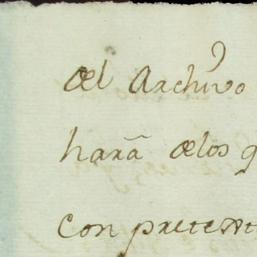 del Archivo
hará delos q
con pretent